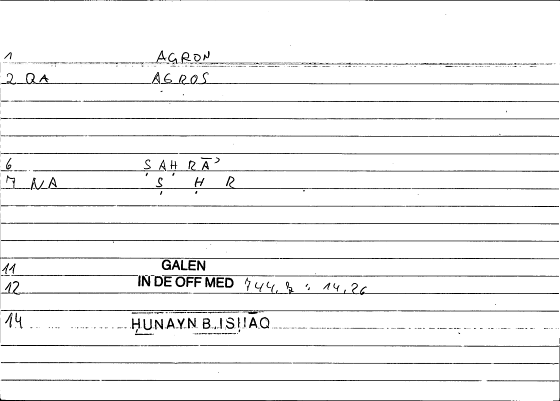 1 AGRON
2 QA AGROS
6 ṢAḤRĀʾ
7 NA Ṣ Ḥ R
11 GALEN
12 IN DE OFF MED 744,2 : 14,26
14 ḤUNAYN B. ISḤĀQ